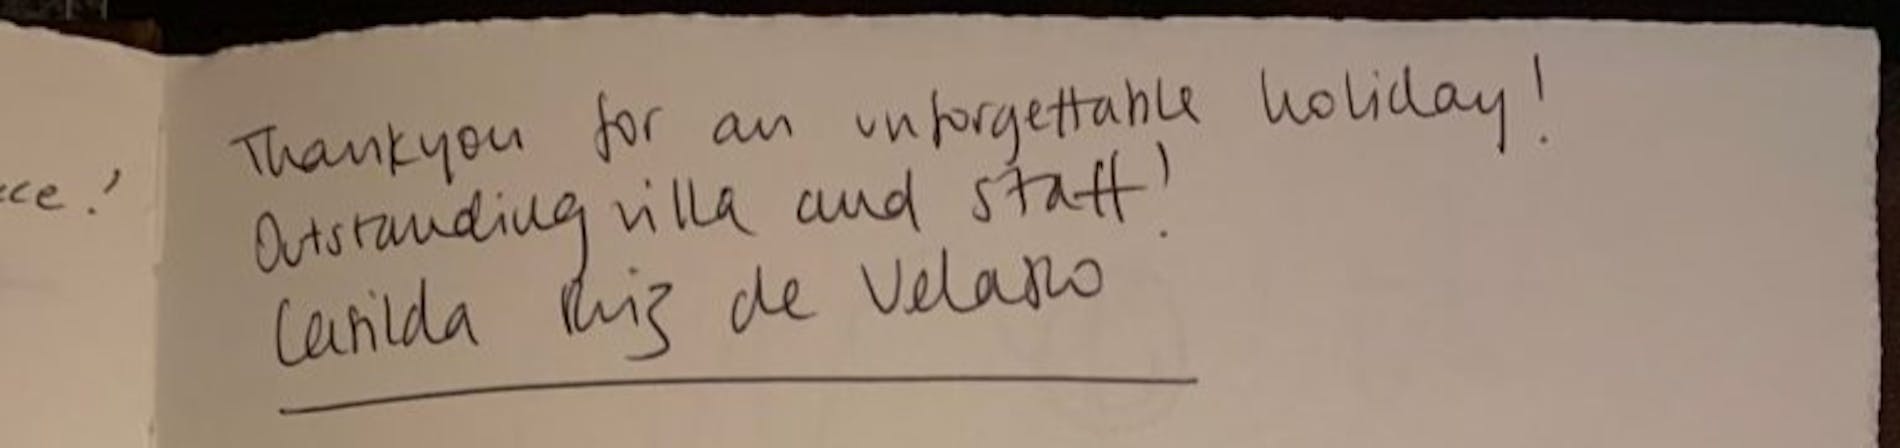 cce!
Thankyou for an unforgettable holiday!
Outstanding villa and staff!
Casilda Ruiz de Velasco